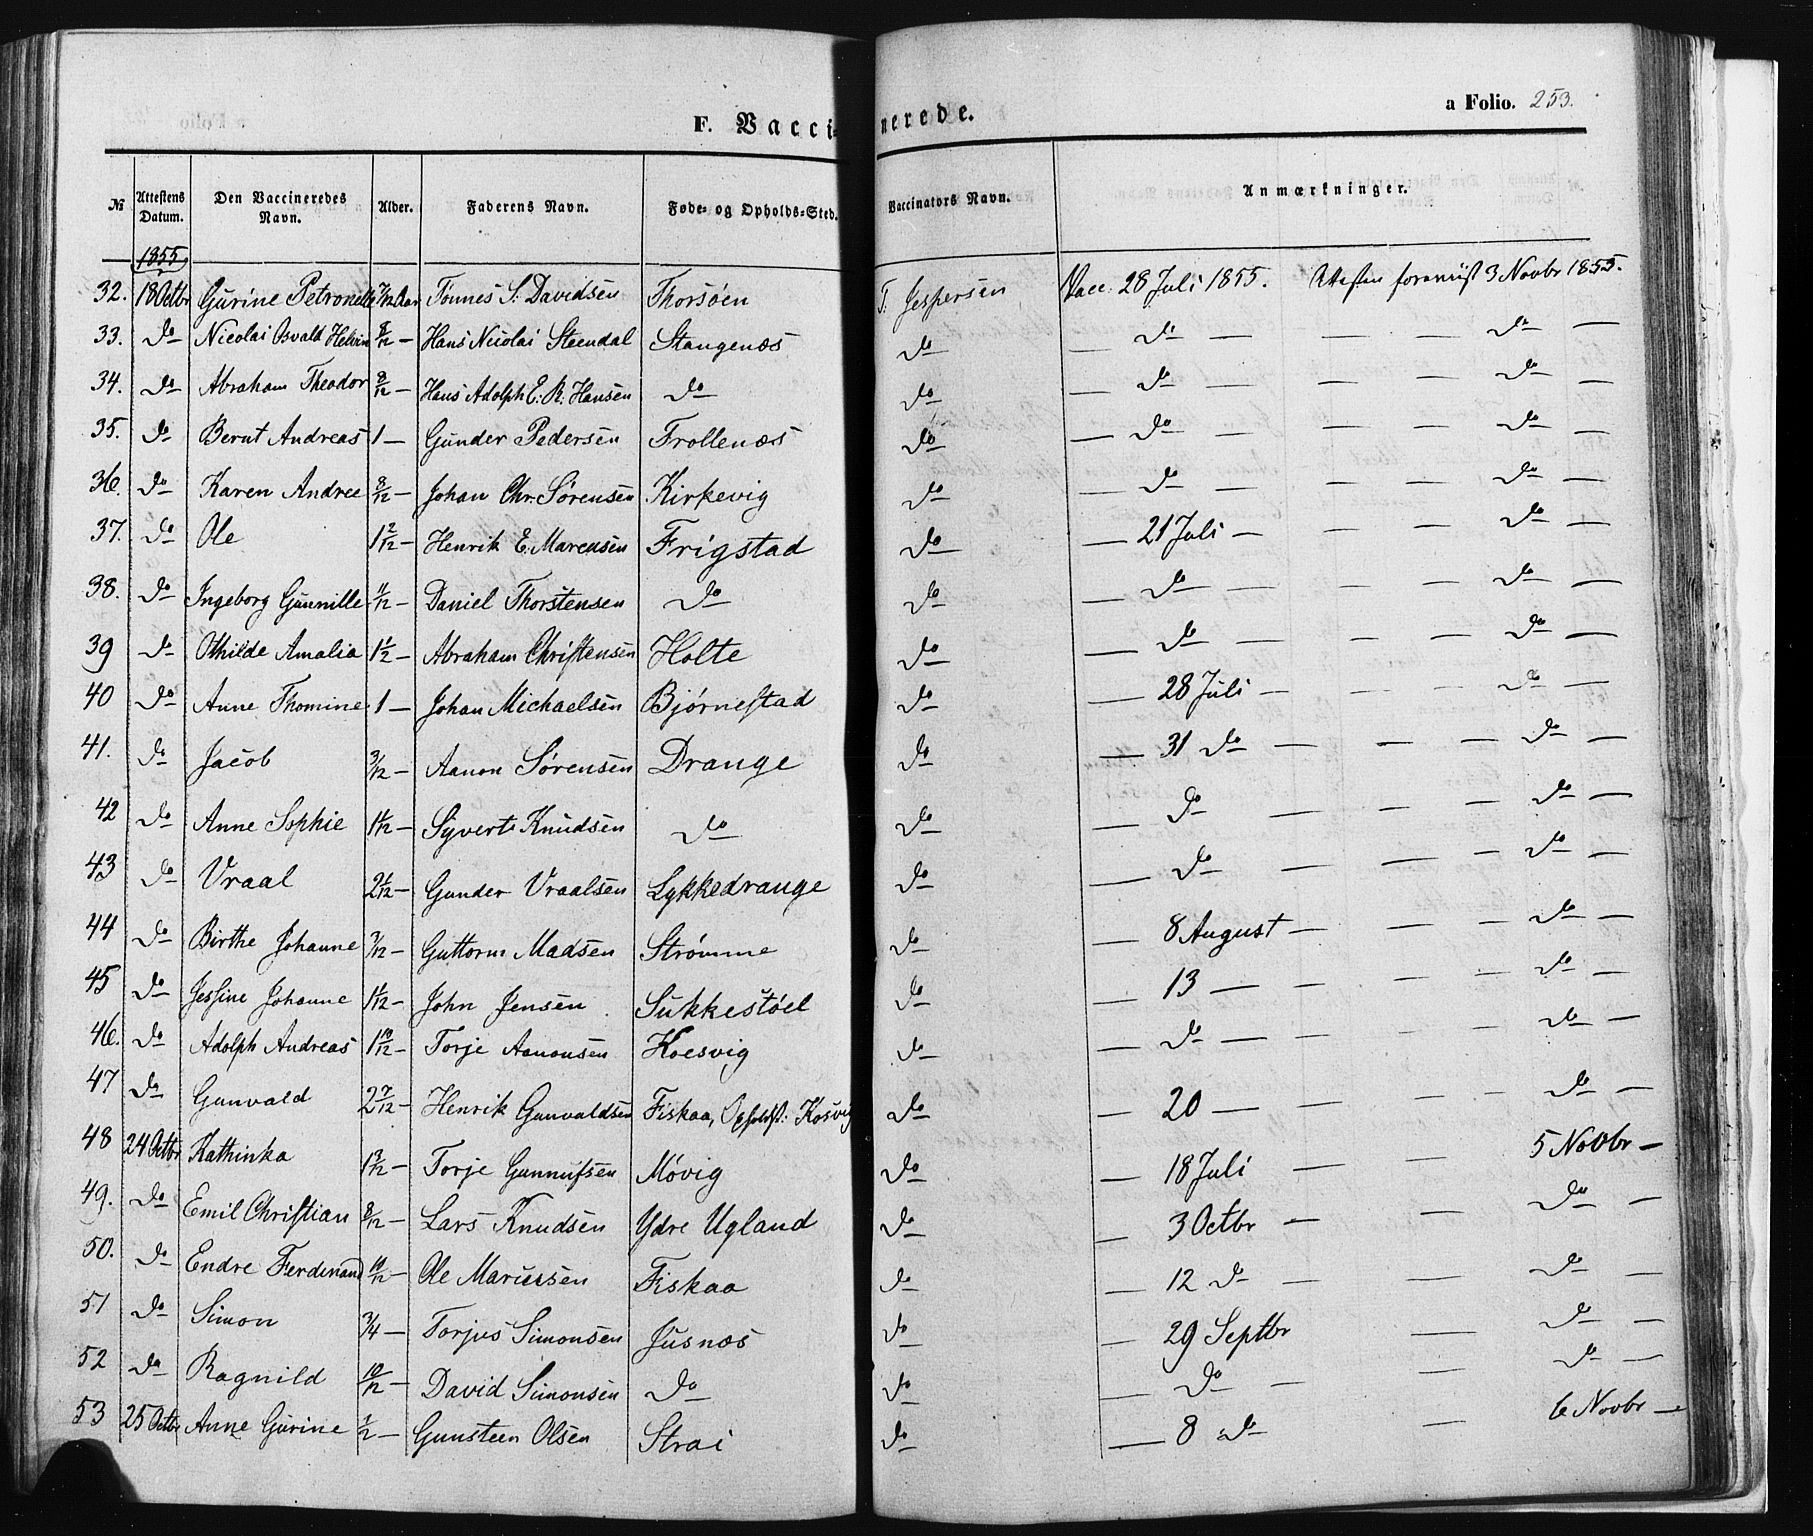 F. Vaccinerede. a Folio. 253.
№ Attestens Datum. Den Vaccineredes Navn. Alder. Faderens Navn. Føde- og Opholds-Sted. Vaccinators Navn. Anmærkninger.
1855
32. 18 Octbr Gurine Petronelle Tønnes S. Davidsen Thorsøen T. Jespersen Vacc. 28 Juli 1855. Attesten forevist 3 Novbr 1855.
33. Do Nicolai Osvald Helvin 8/12 — Hans Nicolai Steendal Stangenæs Do — Do — — — Do —
34. Do Abraham Theodor 8/12 — Hans Adolph E. R. Hansen Do Do — Do — — — Do —
35. Do Bernt Andreas 1 — Gunder Pedersen Frollenæs Do — Do — — — Do —
36. Do Karen Andree 8/12 — Johan Chr. Sørensen Kirkevig Do — Do — — — Do —
37. Do Ole 1 2/12 — Henrik E. Marcusen Frigstad Do — 21 Juli — — — Do —
38. Do Ingeborg Gunnille 11/12 — Daniel Thorstensen Do Do — Do — — — Do —
39 Do Othilde Amalia 1 1/2 — Abraham Christensen Holte Do — Do — — — Do —
40 Do Anne Thomine 1 — Johan Michaelsen Bjørnestad Do — 28 Juli — — — Do —
41. Do Jacob 3/12 — Aanon Sørensen Drange Do — 31 Do — — — Do —
42 Do Anne Sophie 1 1/12 — Syvert Knudsen Do Do — Do — — — Do —
43 Do Vraal 2 1/12 — Gunder Vraalsen Lykkedrange Do — Do — — — Do —
44 Do Birthe Johanne 7/12 — Guttorm Madsen Strømme Do — 8 August — — — Do —
45 Do Jessine Johanne 1 1/12 — John Jensen Sukkestøel Do — 13 — — — — Do —
46. Do Adolph Andreas 1 10/12 — Torje Aanonsen Koesvig Do — Do — — — Do —
47 Do Gunvald 2 7/12 — Henrik Gunvaldsen Fiskaa, Opholdst: Kosvig Do — 20 — — — Do —
48 24 Octbr Kathinka 1 3/12 — Torje Gunnufsen Møvig Do — 18 Juli — — 5 Novbr —
49. Do Emil Christian 8/12 — Lars Knudsen Ydre Ugland Do — 3 Octbr — — Do —
50. Do Endre Ferdinand 10/12 — Ole Mariussen Fiskaa Do — 12 Do — — Do —
51 Do Simon 3/4 — Torjus Simonsen Jusnæs Do — 29 Septbr — Do —
52 Do Ragnild 10/12 — David Simonsen Do Do — Do — — Do —
53 25 Octbr Anne Gurine 1/2 — Gunsteen Olsen Strai Do — 8 Do — 6 Novbr —